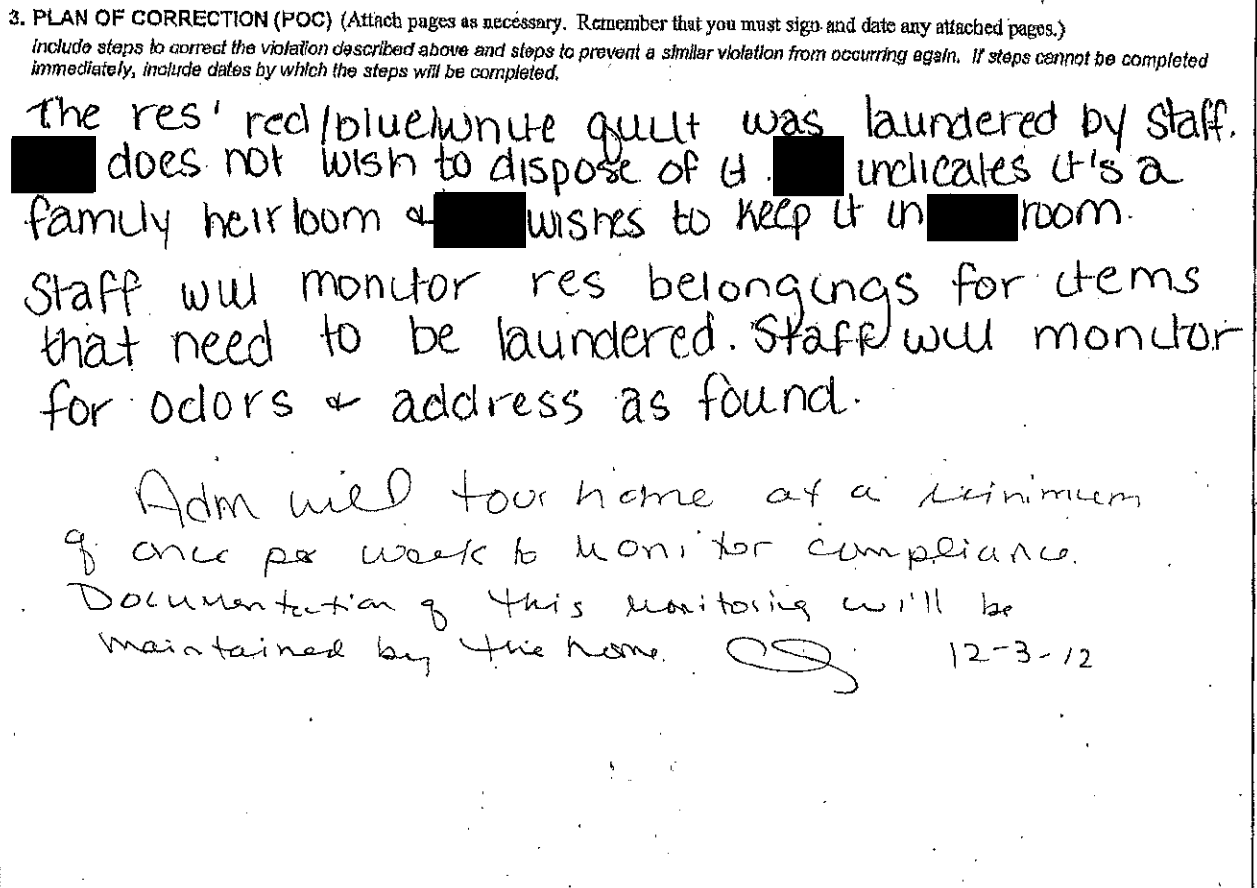 3. PLAN OF CORRECTION (POC) (Attach pages as necessary. Remember that you must sign and date any attached pages.)
Include steps to correct the violation described above and steps to prevent a similar violation from occurring again. If steps cannot be completed
immediately, include dates by which the steps will be completed.
The res' red/blue/white quilt was laundered by staff.
does not wish to dispose of it. indicates it's a
family heirloom & wishes to keep it in room.
Staff will monitor res belongings for items
that need to be laundered. Staff will monitor
for odors & address as found.
Adm will tour home at a minimum
of once per week to monitor compliance.
Documentation of this monitoring will be
maintained by the home. 12-3-12